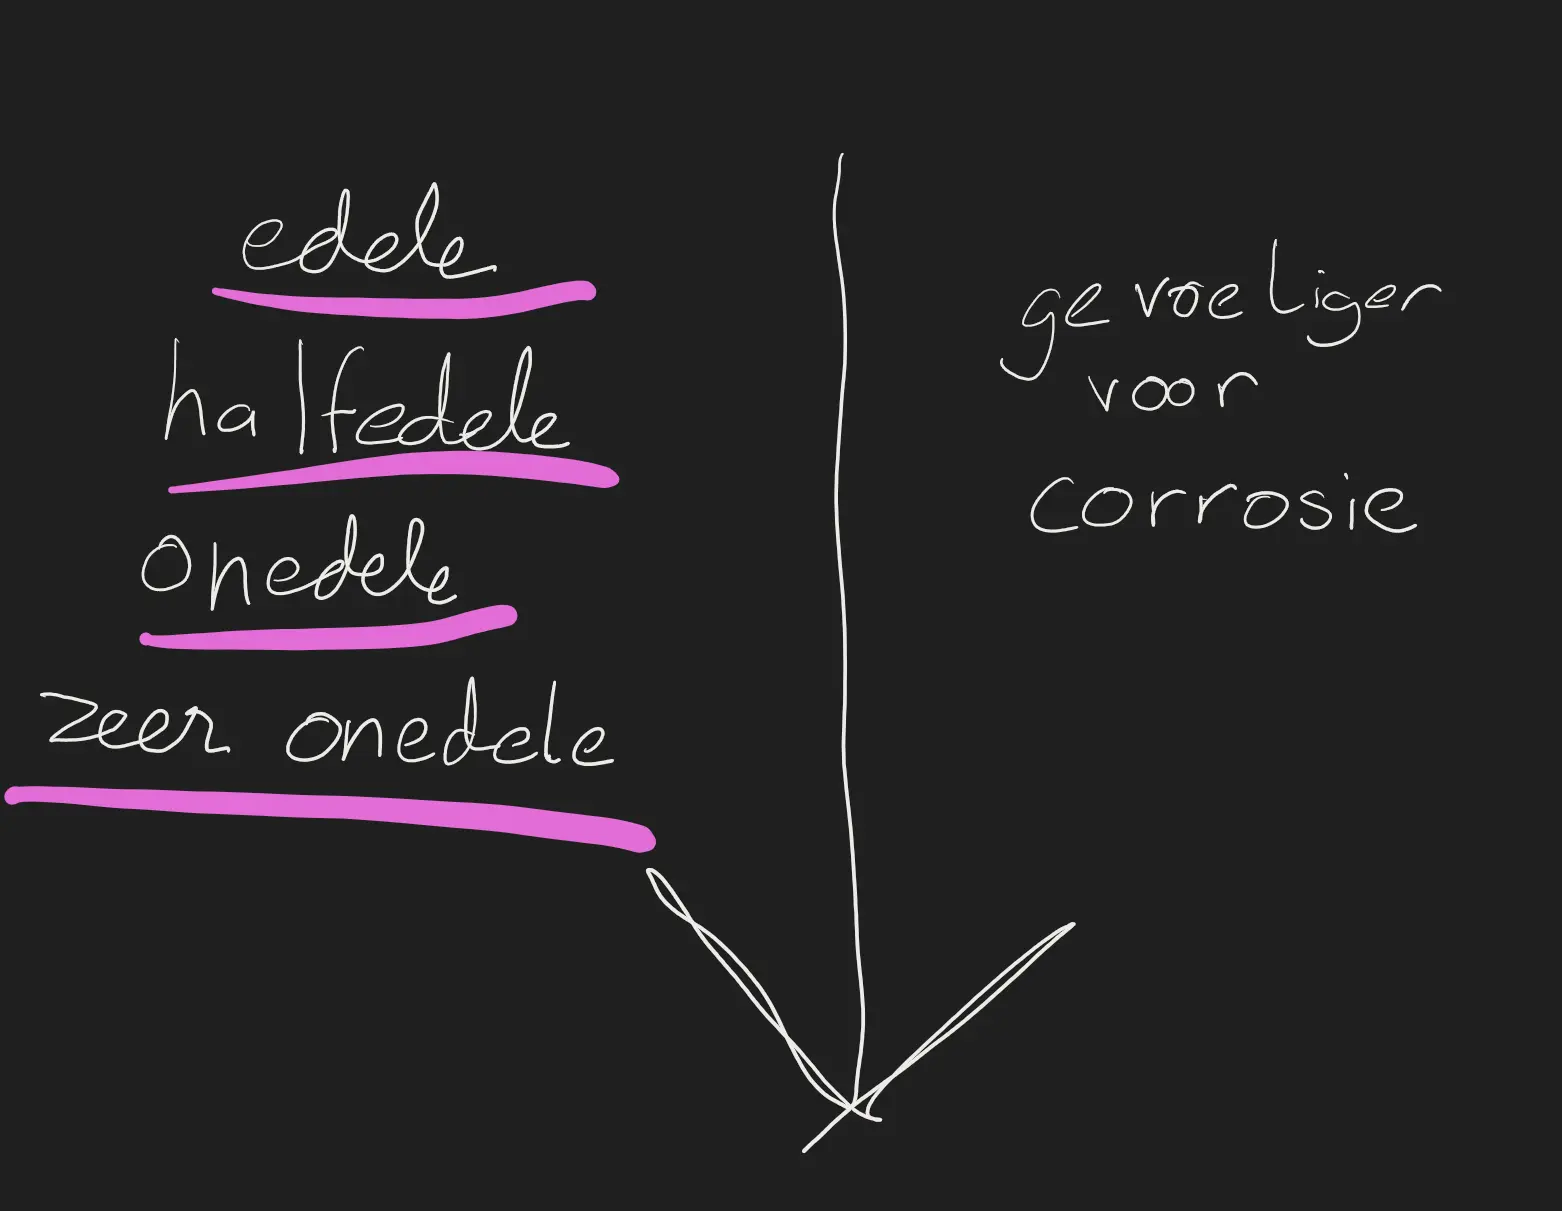 edele
halfedele
onedele
zeer onedele
gevoeliger
voor
corrosie